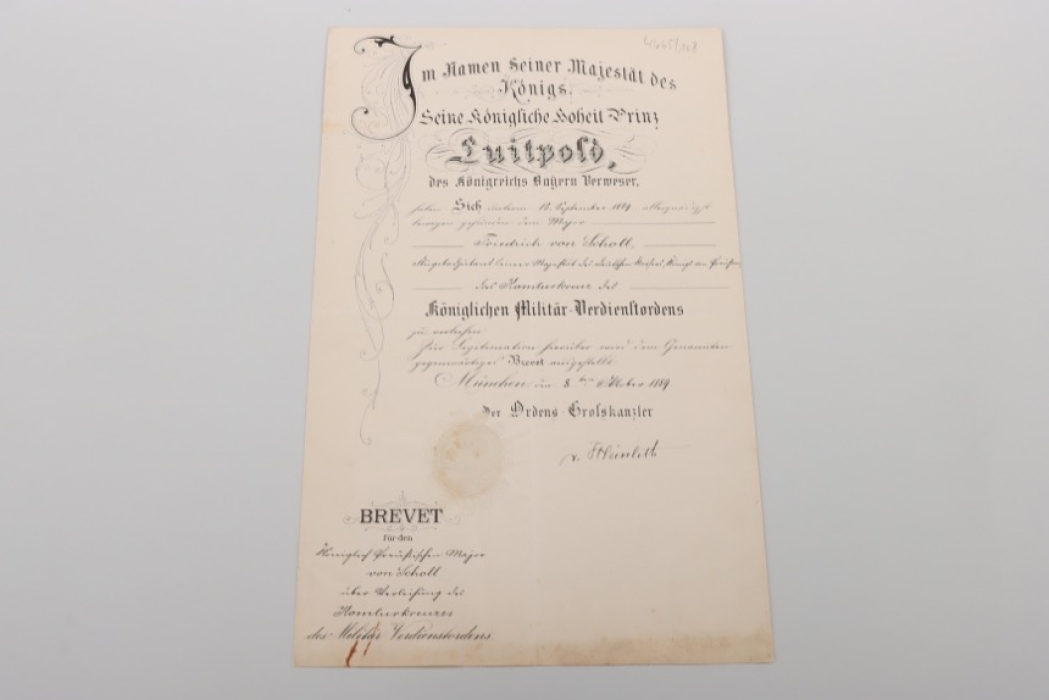 4465/108
Im Namen Seiner Majestät des
Königs.
Seine Königliche Hoheit Prinz
Luitpold,
des Königreichs Bayern Verweser,
haben Sich unterm 18. September 1889 allergnädigst
bewogen gefunden dem Major
Friedrich von Scholl,
Flügeladjutant Seiner Majestät des deutschen Kaisers, Königs von Preußen
das Komturkreuz des
Königlichen Militär-Verdienstordens
zu verleihen.
Zur Legitimation hierüber wird dem Genannten
gegenwärtiges Brevet ausgestellt.
München, den 8ten Oktober 1889.
Der Ordens-Grofskanzler
v. Heinleth
BREVET
für den
Königlich Preußischen Major
von Scholl
über Verleihung des
Komturkreuzes
des Militär Verdienstordens